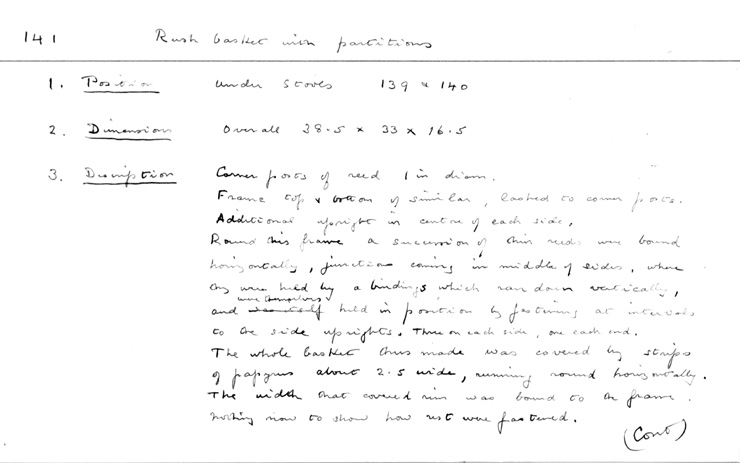 141 Rush basket with partitions
1. Position under stools 139 & 140
2. Dimensions Overall 38.5 x 33 x 16.5
3. Description Corner posts of reed 1 in diam.
Frame top & bottom of similar, lashed to corner posts.
Additional upright in centre of each side.
Round this frame a succession of thin reeds were bound
horizontally, junction coming in middle of sides, where
they were held by a bindings which ran down vertically,
and were themselves held in position by fastening at intervals
to the side uprights. Three on each side, one each end.
The whole basket thus made was covered by strips
of papyrus about 2.5 wide, running round horizontally.
The width that covered rim was bound to the frame.
Nothing now to show how rest were fastened.
(Cont)